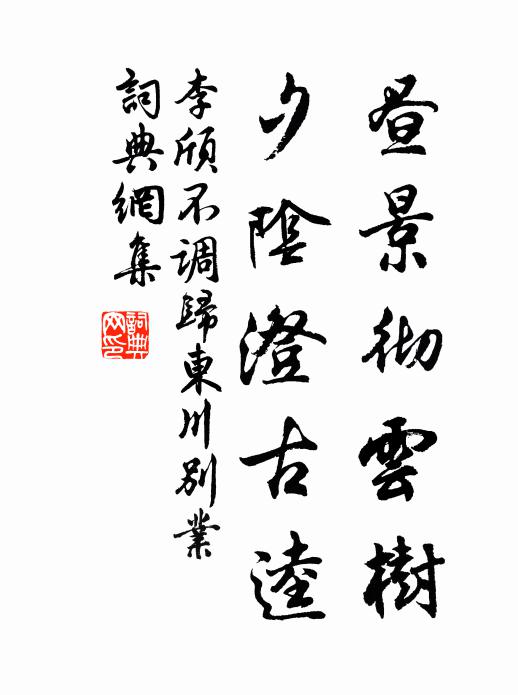 昼景彻雲樹
夕陰澄古逵
李頎不调歸東川别業
詞典網集
詞典網印